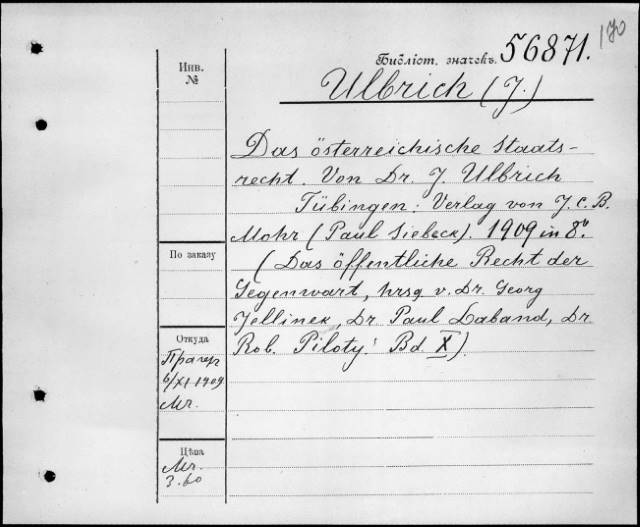 170
Библіот. значекъ. 56871.
Инв.
№
Ulbrich (J.)
Das österreichische Staats-
recht. Von Dr. J. Ulbrich
Tübingen: Verlag von J. C. B.
Mohr (Paul Siebeck). 1909 in 8°.
По заказу
(Das öffentliche Recht der
Gegenwart, hrsg. v. Dr. Georg
Jellinek, Dr. Paul Laband, Dr.
Откуда
Rob. Piloty: Bd. X).
Прагер
6/XI 1909
Mr.
Цѣна
Mr.
3.60